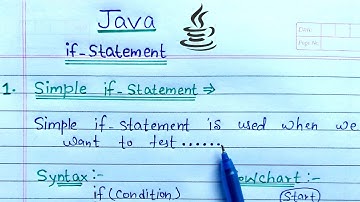 Java
Date
Page No.
if-Statement
1. Simple if-Statement ⇒
Simple if-Statement is used when we
want to test.......
Syntax:- Flowchart:-
if (Condition) Start